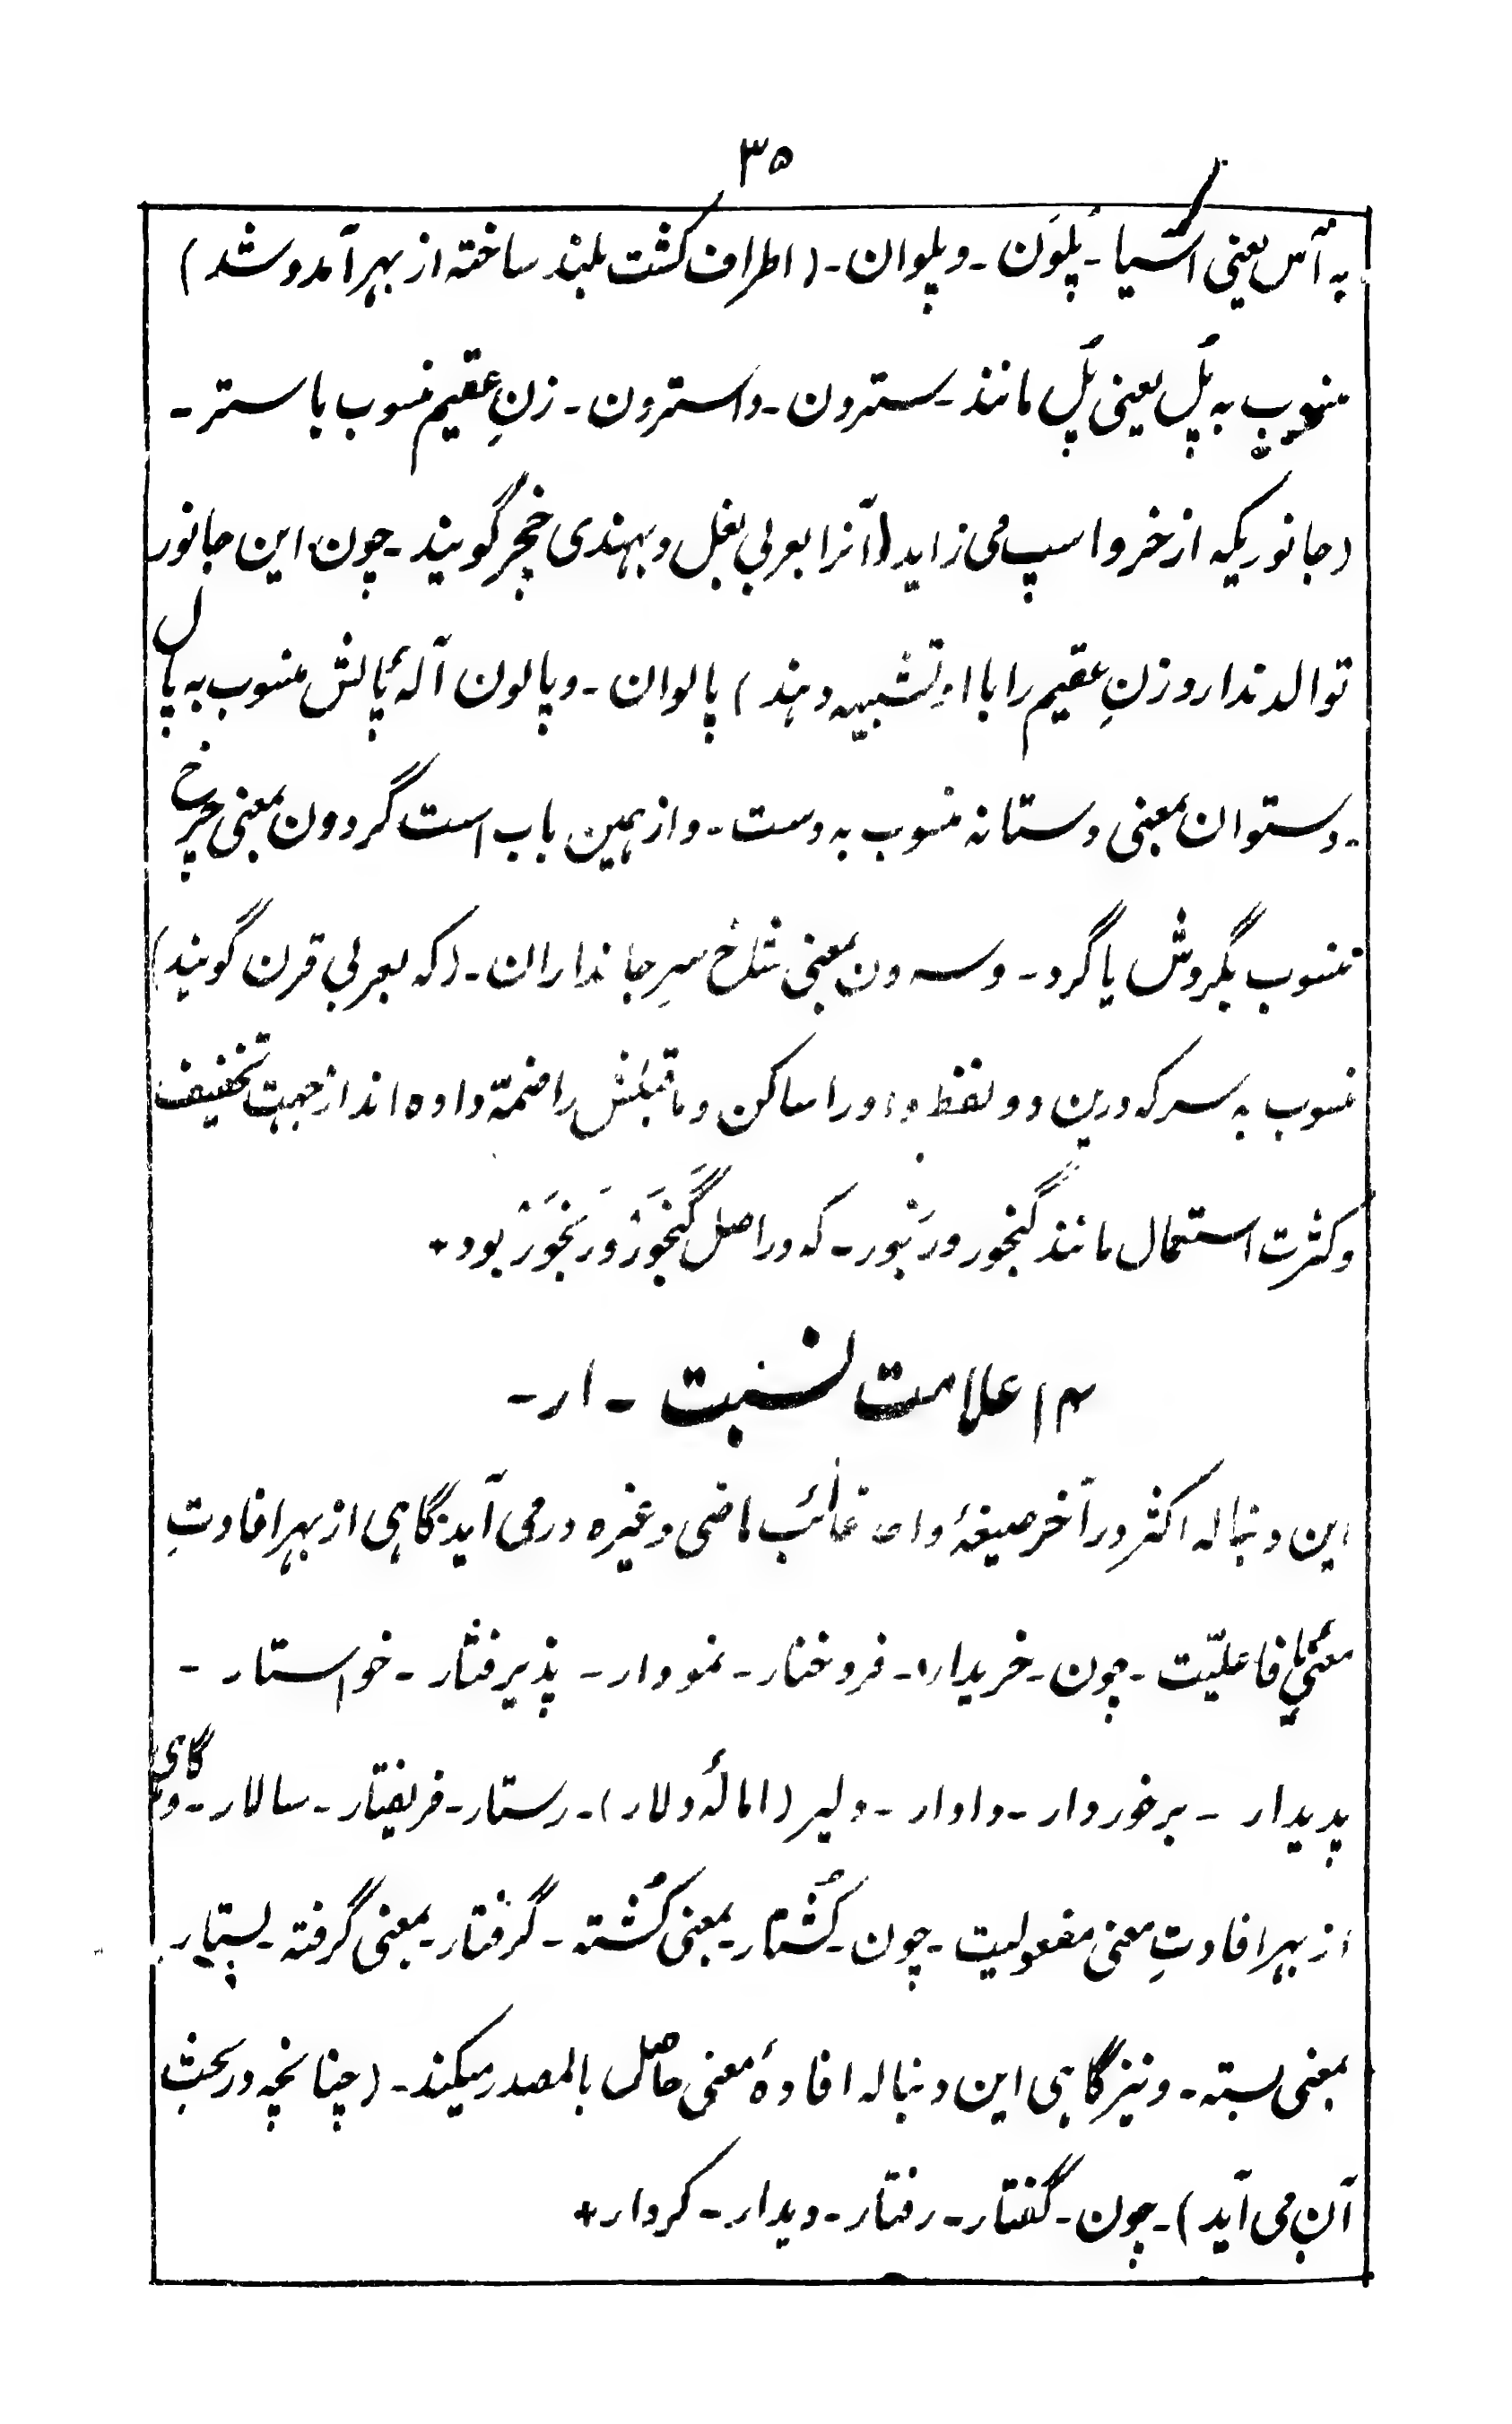 ۳۵
به آس یعنی آسیا - پُلوَن - و پلوان - (اطراف کشت بلند ساخته از بهر آمد و شد)
منسوب به پُل یعنی پُل مانند - سترون - و استرون - زنِ عقیم منسوب با ستر -
(جانوریکه از خر و اسپ می زاید (آنرا بعربی بغل و بهندی خچر گویند - چون این جانور
توالد ندارد زنِ عقیم را با او تشبیه دهند) پالوان - و پالون آلهٔ پالش منسوب به پال
- دستوان بمعنی دستانه منسوب به دست - و از همین باب است گردون بمعنی چرخ
منسوب بگردش یا گرد - و سرون بمعنی شاخِ سرِ جانداران - (که بعربی قرن گویند)
منسوب به سر که درین دو لفظ واو را ساکن و ماقبلش را ضمّه داده اند از جهت تخفیف
و کثرت استعمال مانند گنجور و رنجور - که در اصل گَنجوَرْ و رَنجوَرْ بود +
۱۴ علامت نسبت - ار -
این دنباله اکثر در آخر صیغهٔ واحد غائب ماضی و غیره در می آید گاهی از بهر افادتِ
معنیِ فاعلیّت - چون - خریدار - فروختار - نمودار - پذیرفتار - خواستار -
پدیدار - برخوردار - دادار - دلیر (امالهٔ دلار) - رستار - فریفتار - سالار - و گاهی
از بهر افادتِ معنی مفعولیت - چون - کُشتار - بمعنی کُشته - گرفتار - بمعنی گرفته - بستار
بمعنی بسته - و نیز گاهی این دنباله افادهٔ معنی حاصل بالمصدر میکند - (چنانچه در بحث
آن می آید) - چون - گفتار - رفتار - دیدار - کردار +